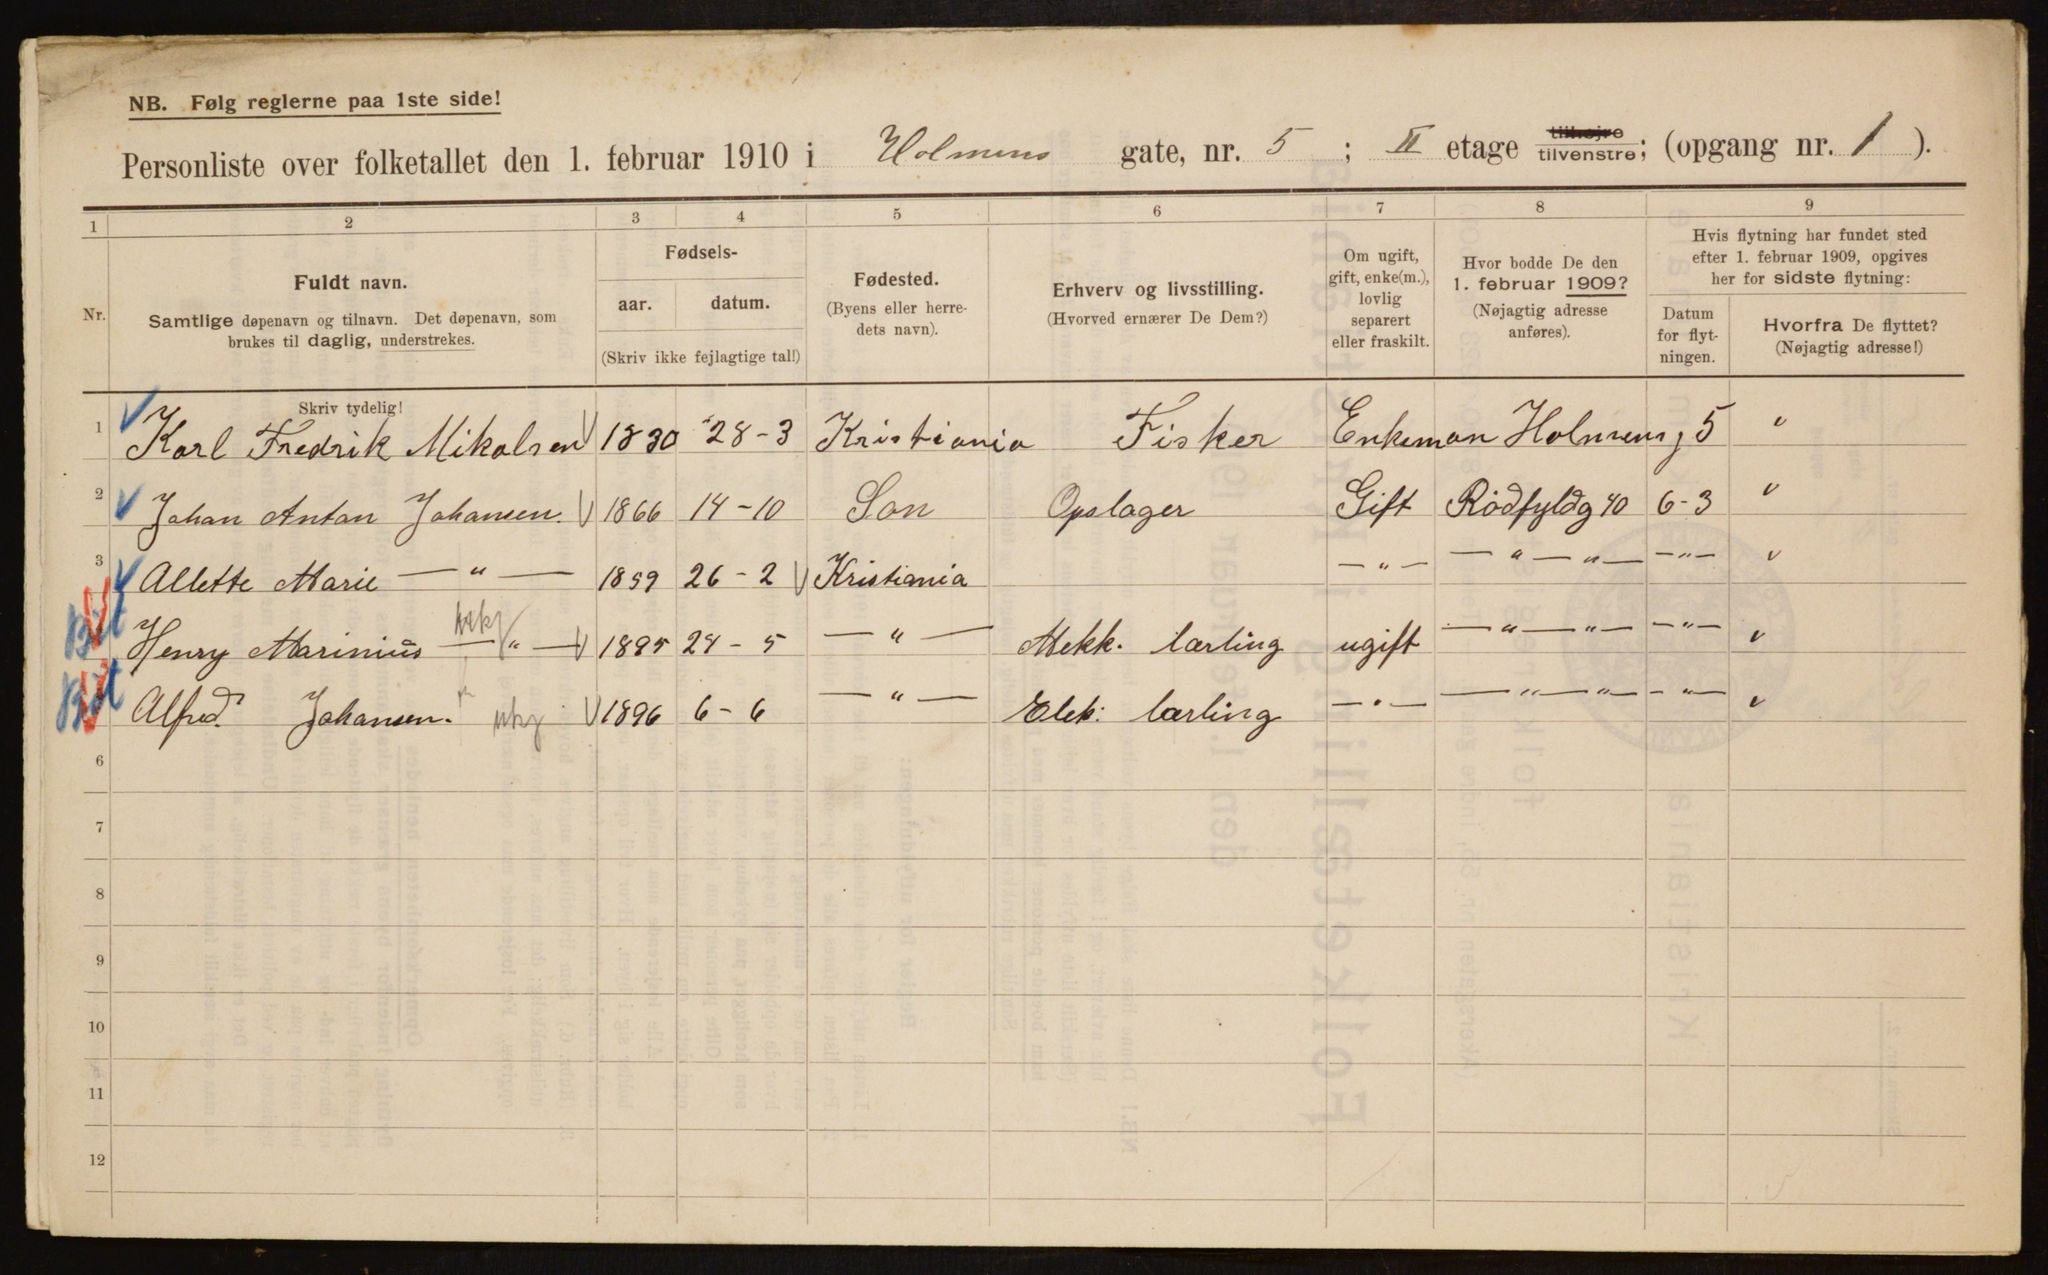 NB. Følg reglerne paa 1ste side!
Personliste over folketallet den 1. februar 1910 i Holmens gate, nr. 5 ; II etage tilhøjre tilvenstre; (opgang nr. 1 ).
1 2 3 4 5 6 7 8 9
Nr.
Fuldt navn.
Samtlige døpenavn og tilnavn. Det døpenavn, som
brukes til daglig, understrekes.
Fødsels-
aar. datum.
(Skriv ikke fejlagtige tal!)
Fødested.
(Byens eller herre-
dets navn).
Erhverv og livsstilling.
(Hvorved ernærer De Dem?)
Om ugift,
gift, enke(m.),
lovlig
separert
eller fraskilt.
Hvor bodde De den
1. februar 1909?
(Nøjagtig adresse
anføres).
Hvis flytning har fundet sted
efter 1. februar 1909, opgives
her for sidste flytning:
Datum
for flyt-
ningen.
Hvorfra De flyttet?
(Nøjagtig adresse!)
Skriv tydelig!
1 Karl Fredrik Mikalsen 1830 28-3 Kristiania Fisker Enkeman Holmens 5 "
2 Johan Antan Johansen. 1866 14-10 Son Opslager Gift Rødfyldg 40 6-3 "
3 Allette Marie —"— 1859 26-2 Kristiania —"— —"—"— —"— "
Bit Henry Marinius —"— 1895 24-5 —"— Mekk. lærling ugift —"—"— —"— "
Bit Alfred Johansen. 1896 6-6 —"— Elek: lærling —"— —"—"— —"— "
6
7
8
9
10
11
12